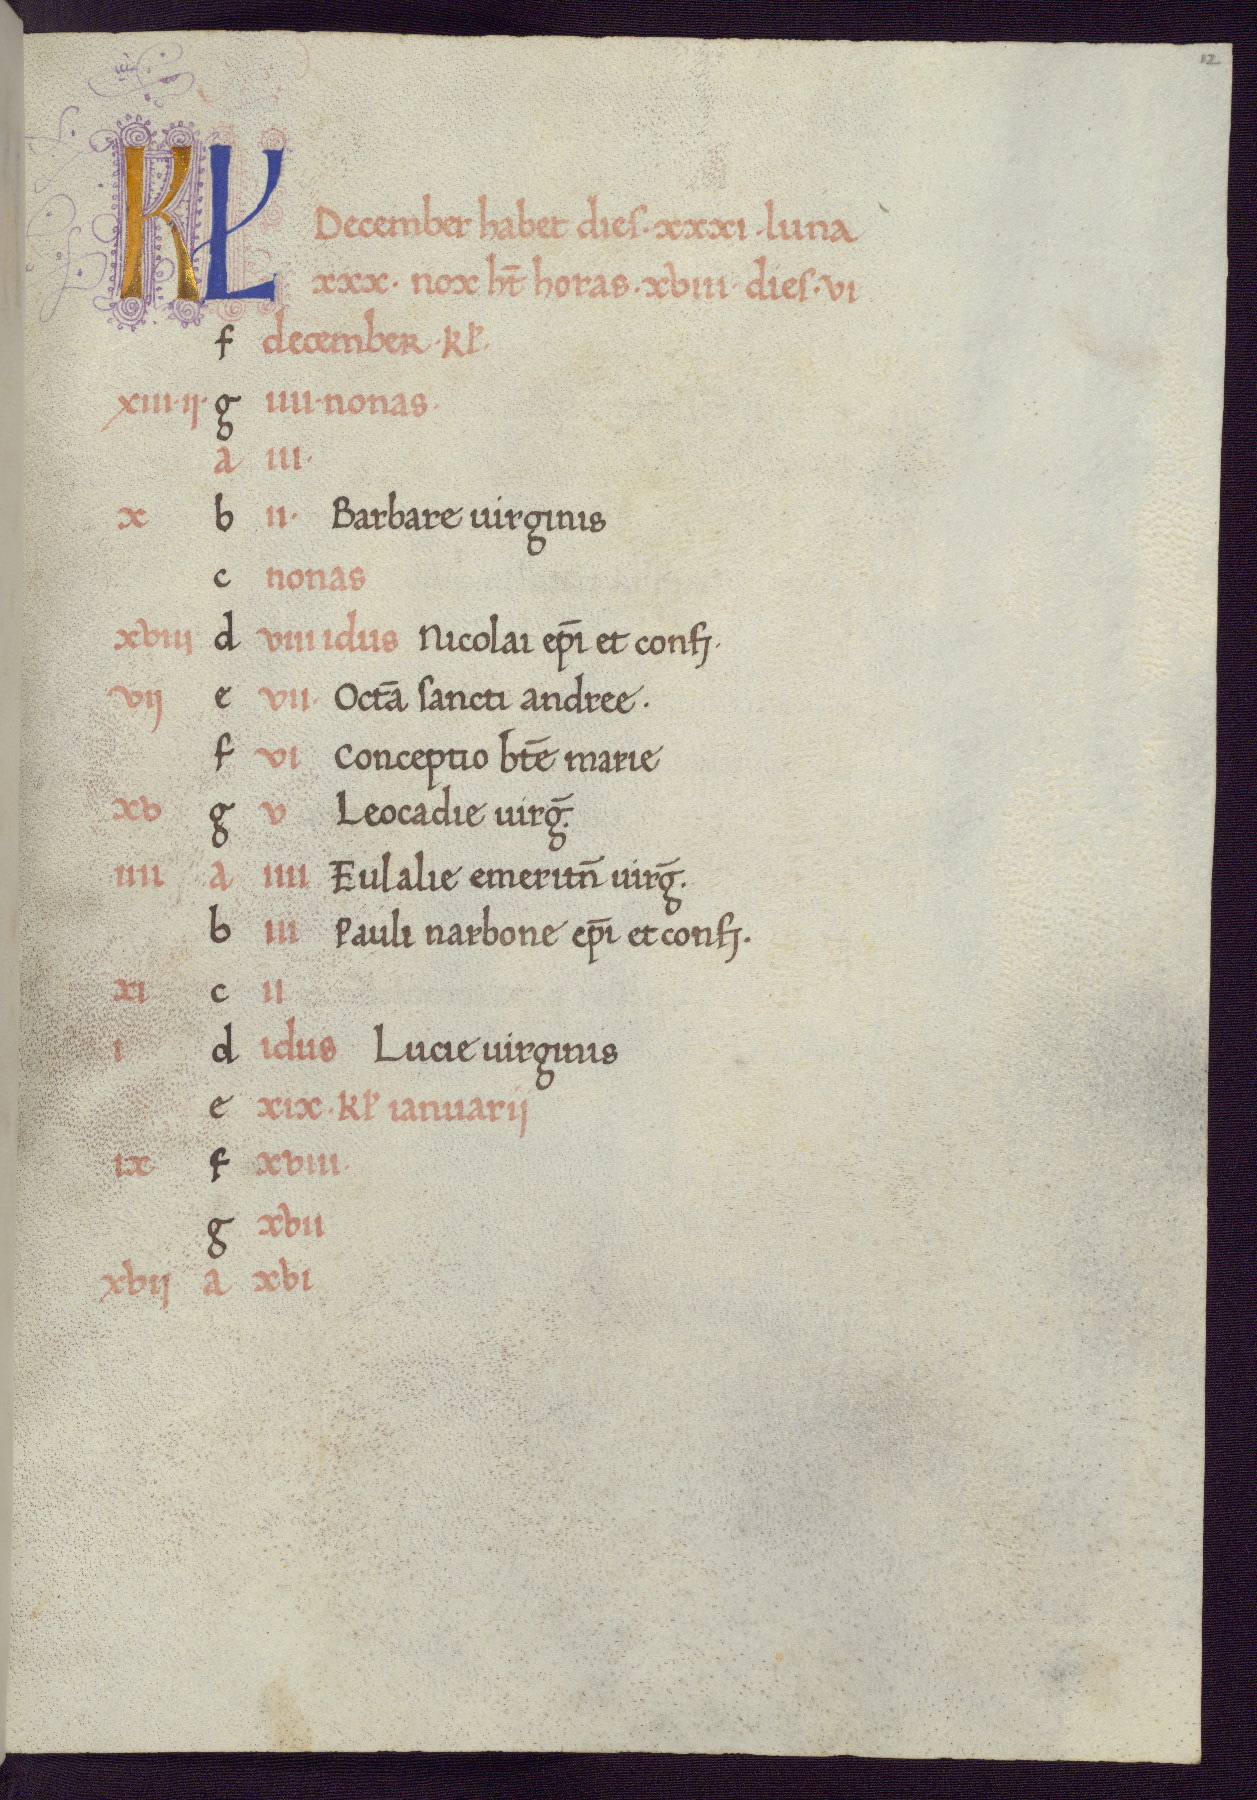 12
KL December habet dies · xxxi · luna
xxx · nox ht̄ horas · xviii · dies · vi
f december · kl ·
xiii · ij · g iiii · nonas ·
a iii ·
x b ii · Barbare uirginis
c nonas
xviij d viii idus Nicolai ep̄i et conf ·
vij e vii · Octā sancti andree ·
f vi Conceptio bt̄e marie
xv g v Leocadie uirḡ ·
iiii a iiii Eulalie emeritn̄ uirḡ ·
b iii Pauli narbone ep̄i et conf ·
xi c ii
i d idus Lucie uirginis
e xix · kl ianuarij
ix f xviii ·
g xvii
xvij a xvi